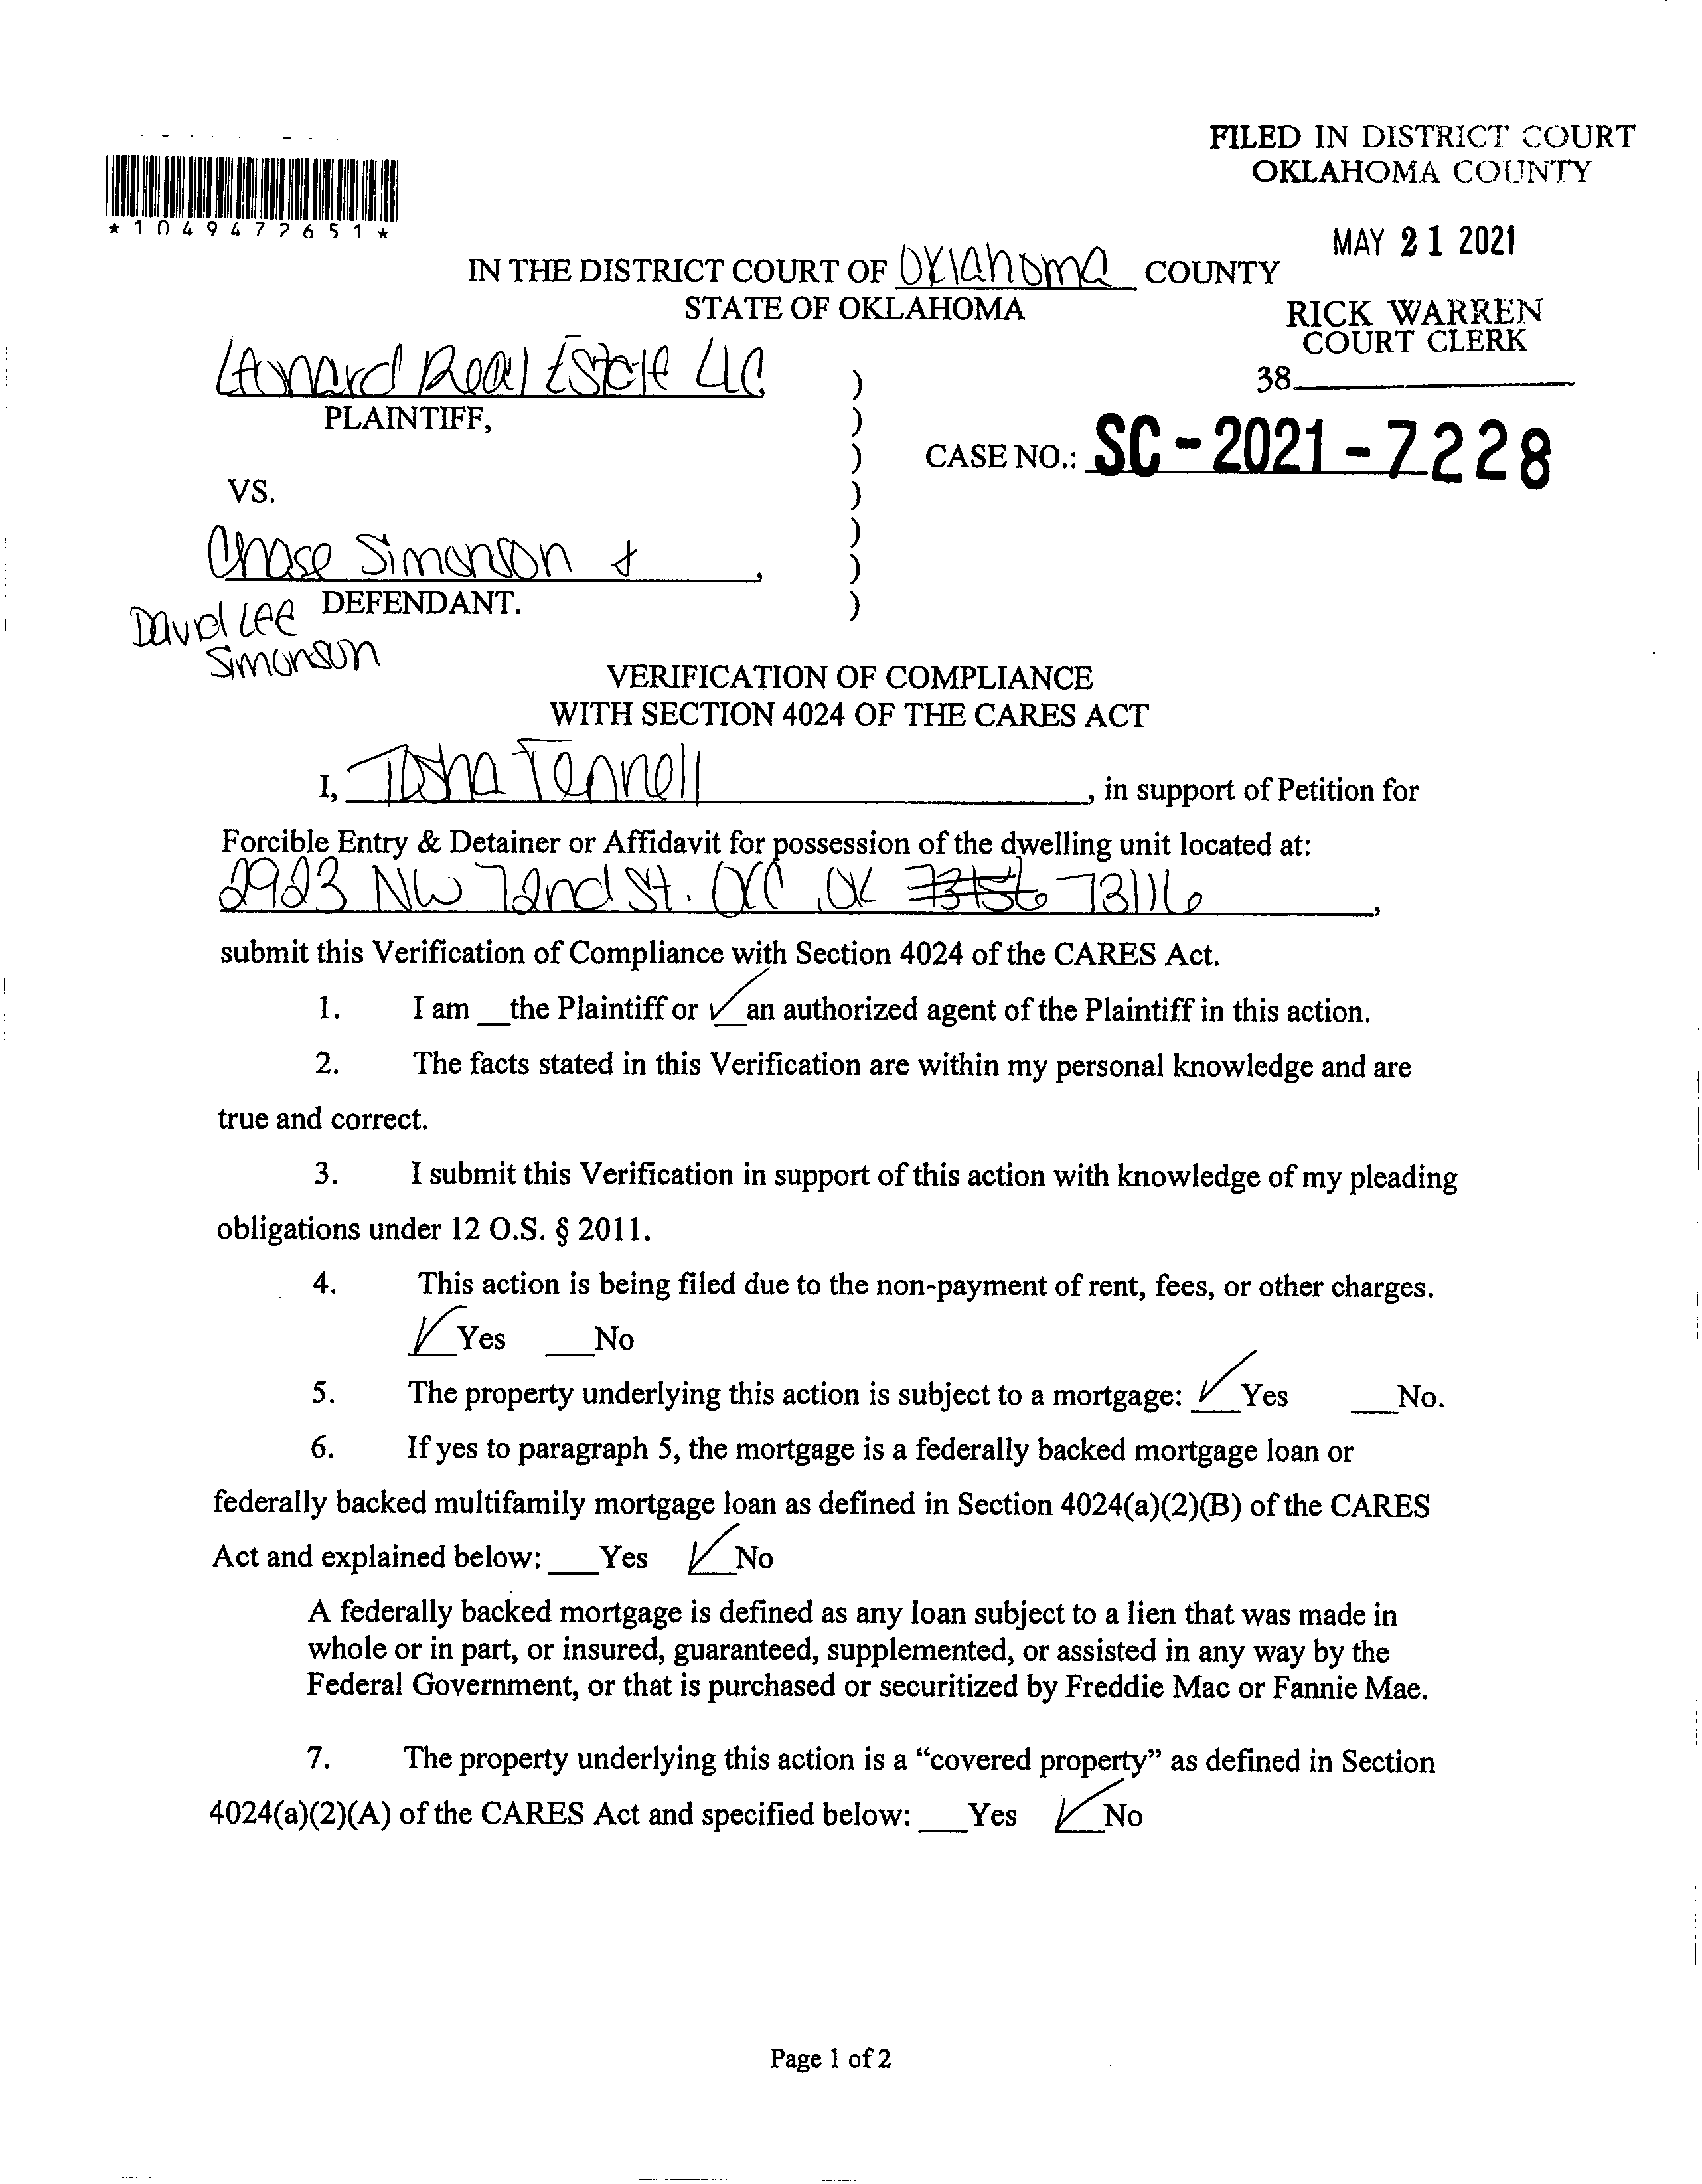 FILED IN DISTRICT COURT
OKLAHOMA COUNTY
*1049477651*
MAY 21 2021
IN THE DISTRICT COURT OF Oklahoma COUNTY
STATE OF OKLAHOMA
RICK WARREN
COURT CLERK
38
Leonard Real Estate LLC
PLAINTIFF,
CASE NO.: SC-2021-7228
VS.
Chase Simonson &
DEFENDANT.
David Lee
Simonson
VERIFICATION OF COMPLIANCE
WITH SECTION 4024 OF THE CARES ACT
I, Tosha Tennell, in support of Petition for
Forcible Entry & Detainer or Affidavit for possession of the dwelling unit located at:
2923 NW 72nd St. OKC, OK 73156 73116,
submit this Verification of Compliance with Section 4024 of the CARES Act.
1. I am __the Plaintiff or ✓ an authorized agent of the Plaintiff in this action.
2. The facts stated in this Verification are within my personal knowledge and are
true and correct.
3. I submit this Verification in support of this action with knowledge of my pleading
obligations under 12 O.S. § 2011.
4. This action is being filed due to the non-payment of rent, fees, or other charges.
✓ Yes ___No
5. The property underlying this action is subject to a mortgage: ✓ Yes ___No.
6. If yes to paragraph 5, the mortgage is a federally backed mortgage loan or
federally backed multifamily mortgage loan as defined in Section 4024(a)(2)(B) of the CARES
Act and explained below: ___Yes ✓ No
A federally backed mortgage is defined as any loan subject to a lien that was made in
whole or in part, or insured, guaranteed, supplemented, or assisted in any way by the
Federal Government, or that is purchased or securitized by Freddie Mac or Fannie Mae.
7. The property underlying this action is a “covered property” as defined in Section
4024(a)(2)(A) of the CARES Act and specified below: ___Yes ✓ No
Page 1 of 2